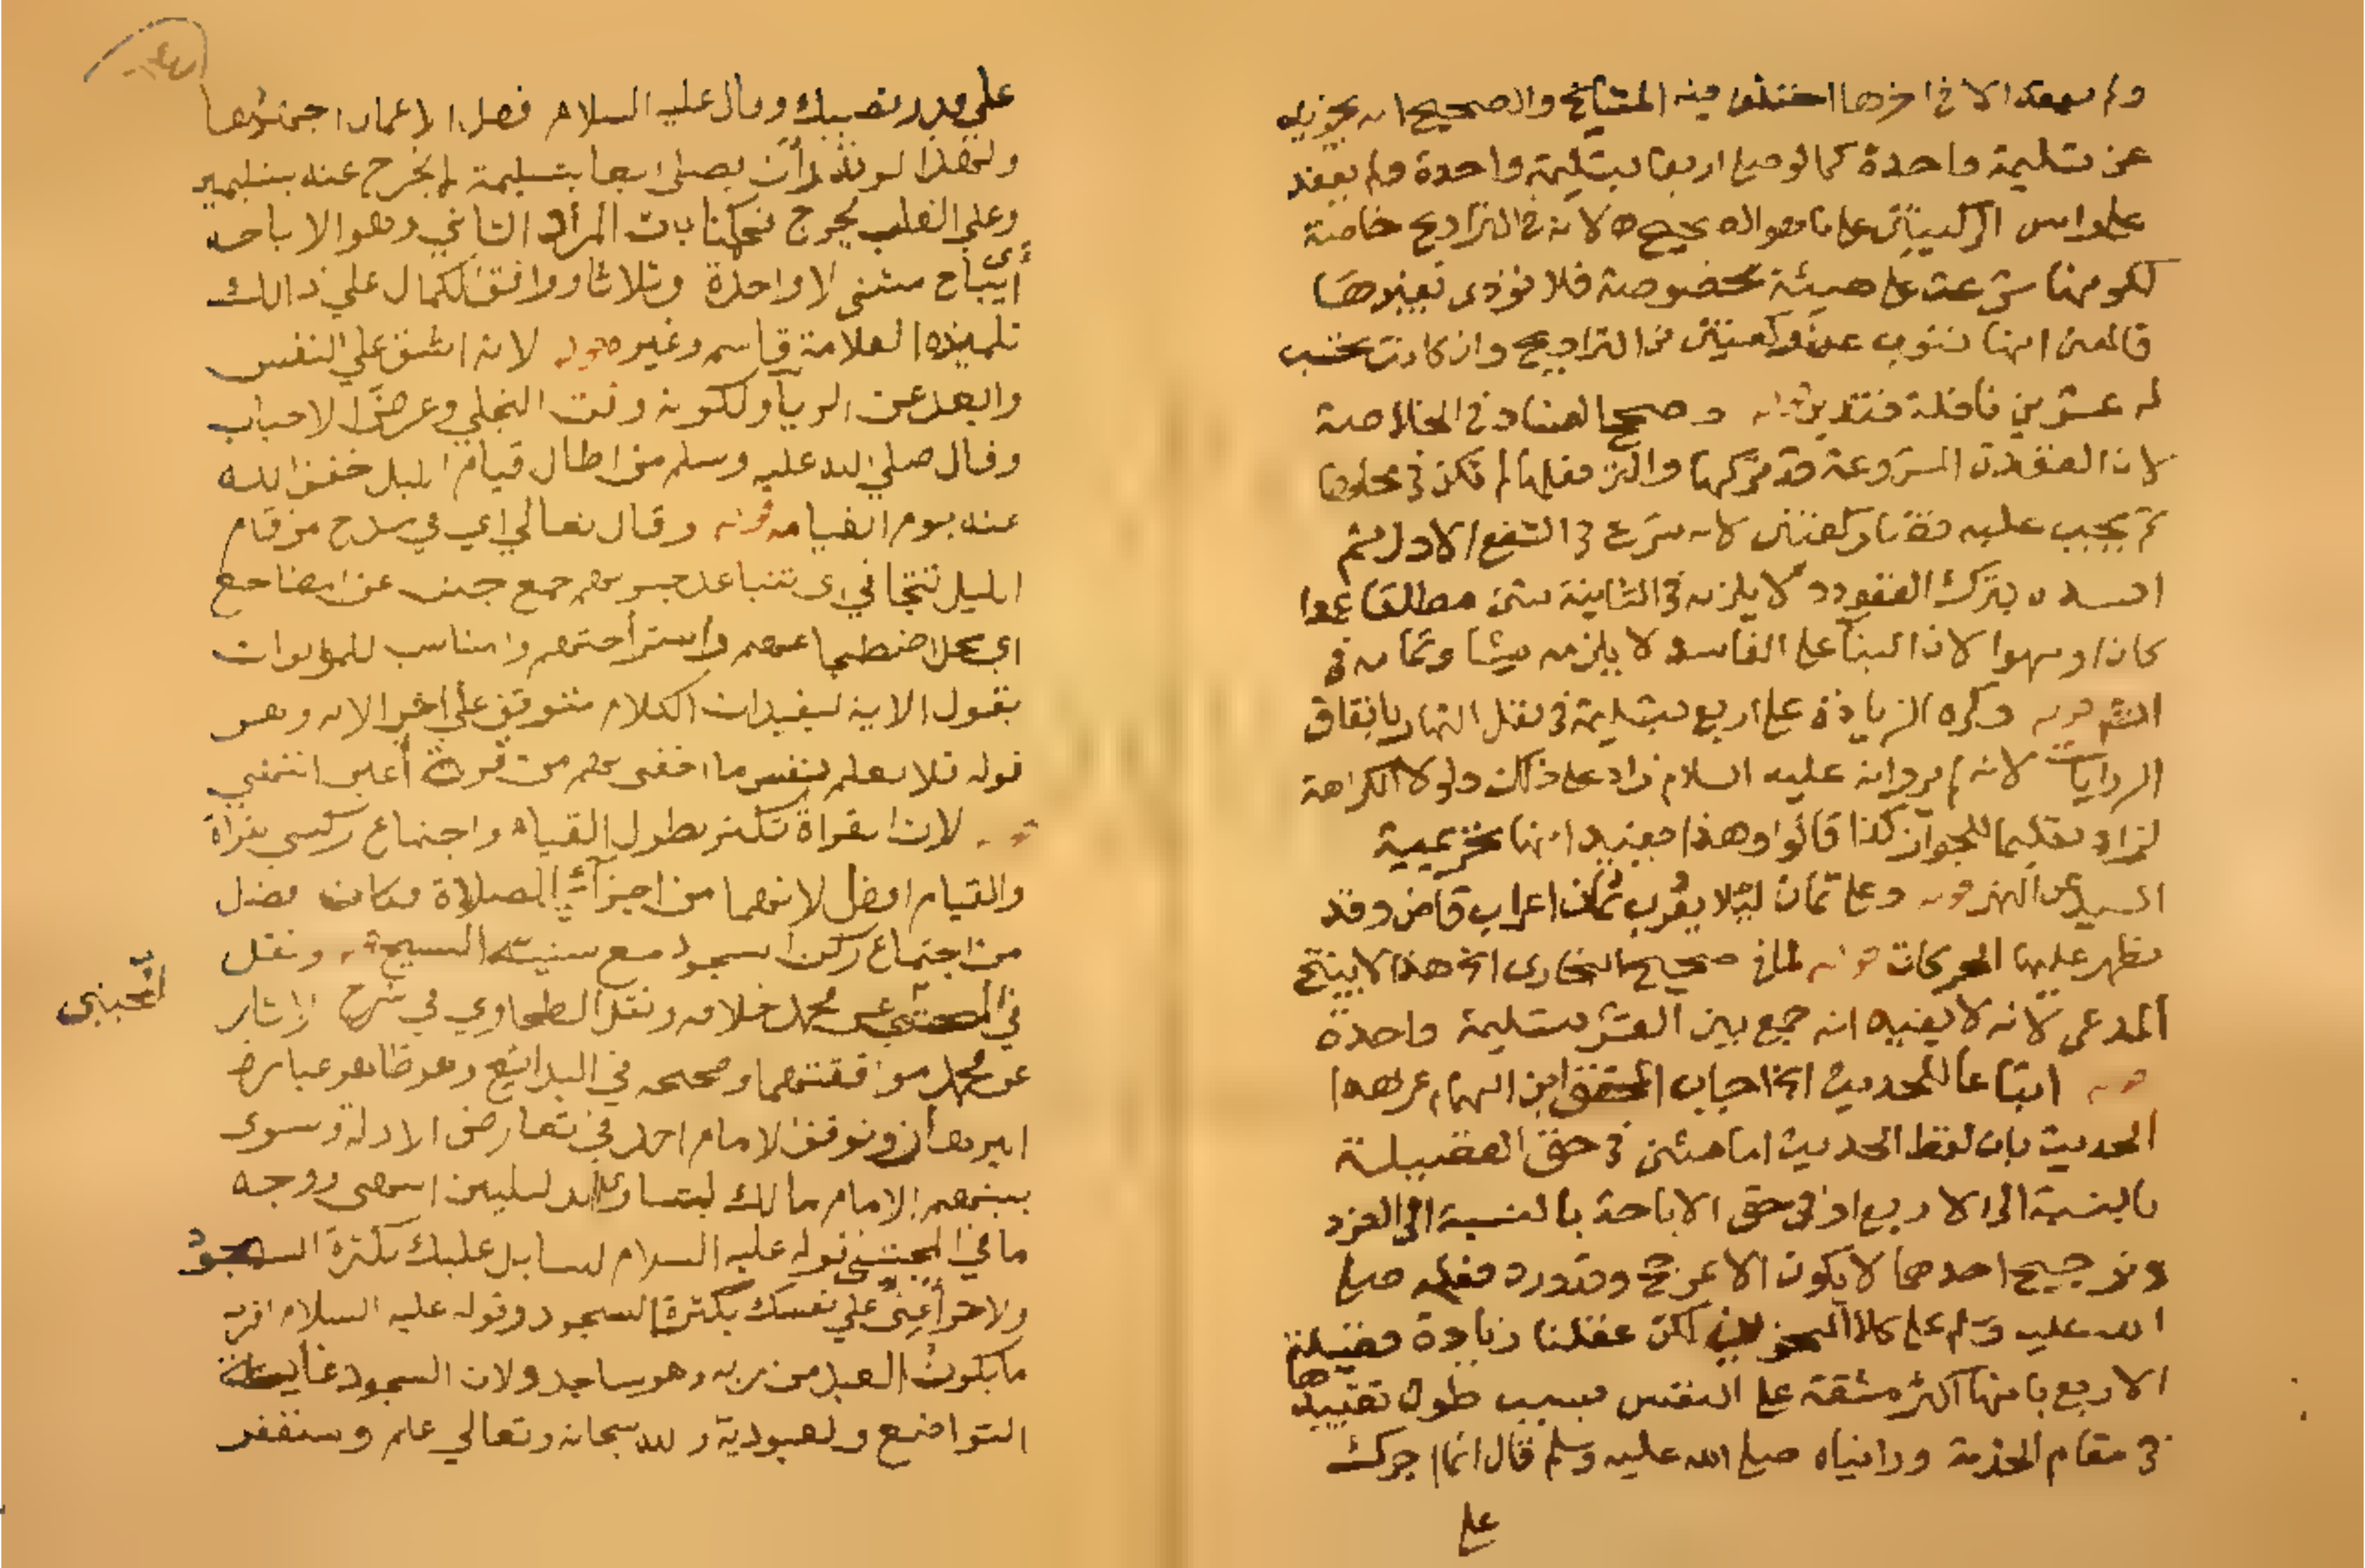 ولم يقعد الا في اخرها اختلف فيه المشايخ والصحيح انه يجزيه
عن تسليمة واحدة كما لو صلى اربعا بتسليمة واحدة ولم يقعد
على راس الركعتين على ما هو الصحيح لانه في التراويح خاصة
لكونها شرعت على هيئة مخصوصة فلا تؤدى بغيرها
قالمعنى انها تنوب عن ركعتين من التراويح وان كانت تحتسب
له عشرين نافلة قوله وصحح العناد في الخلاصة
لان القعدة المشروعة قد تركها والتي فعلها لم تكن في محلها
ثم يجب عليه قضاء ركعتين لانه شرع في الشفع الاول ثم
افسده بترك القعود لا يلزمه في الثانية شئ مطلقا عمدا
كان او سهوا لان البنا على الفاسد لا يلزمه شيئا وتمامه في
قوله وكره الزيادة على اربع بتسليمة في نفل النهار باتفاق
الروايات لانه لم يرو انه عليه السلام زاد على ذلك ولولا الكراهة
لزاد تعليما للجواز كذا قالوا وهذا يفيد انها تحريمية
السيد عن النهر قوله وعلى ثمان ليلا يعرب ثمان اعراب قاض وقد
تظهر عليها الحركات قوله لما في صحيح البخاري الخ هذا لا ينتج
المدعى لانه لا يفيد انه جمع بين العشر بتسليمة واحدة
قوله اتباعا للحديث الخ اجاب المحقق ابن الهمام عن هذا
الحديث بان لفظ الحديث اما مثنى في حق الفضيلة
بالنسبة الى الاربع او في حق الاباحة بالنسبة الى الفرد
وترجيح احدهما لا يكون الا بمرجح وقد ورد فعله صلى
الله عليه وسلم على كلا النحوين لكن عقلنا زيادة فضيلة
الاربع بانها اكثر مشقة على النفس بسبب طول تقييدها
في مقام الخدمة وراياه صلى الله عليه وسلم قال انما اجرك
على
على قدر نصبك وقال عليه السلام فضل الاعمال اجمتها
ولهذا لو نذر ان يصلى اربعا بتسليمة لم يخرج عنه بتسليمتين
وعلى القلب يخرج فحكمنا بان المراد الثاني وهو الاباحة
أي يباح مثنى لا واحدة وثلاثا ووافق الكمال علي ذالك
تلميذه العلامة قاسم وغيره قوله لانه اشق علي النفس
وابعد عن الريا ولكونه وقت التجلي وعرض الاحباب
وقال صلي الله عليه وسلم من اطال قيام الليل خفف الله
عنه يوم القيامه قوله وقال تعالي اي في مدح من قام
الليل تتجافي اي تتباعد جنوبهم جمع جنب عن المضاجع
اي محل اضطجاعهم واستراحتهم والمناسب للمؤلف ان
يقول الاية ليفيد ان الكلام متوقف علي اخر الايه وهو
قوله فلا تعلم نفس ما اخفى لهم من قرة أعين انتهي
قوله لان القراة تكثر بطول القيام واجتماع ركني القراة
والقيام افضل لانهما من اجزاء الصلاة فكان افضل
من اجتماع ركن السجود مع سنية التسبيح قوله ونقل
في المجتبى عن محمد خلافه ونقل الطحاوي في شرح الاثار
المجتبى
عن محمد موافقتهما وصححه في البدائع وهو ظاهر عبارة
البرهان وتوقف الامام احمد في تعارض الادلة وسوى
بينهم الامام مالك لتساوي الدليلين انتهى ووجه
ما في المجتبى قوله عليه السلام لسايل عليك بكثرة السجود
ولاخر أعني علي نفسك بكثرة السجود وقوله عليه السلام اقرب
ما يكون العبد من ربه وهو ساجد ولان السجود غاية
التواضع والعبودية والله سبحانه وتعالي علم وستغفر